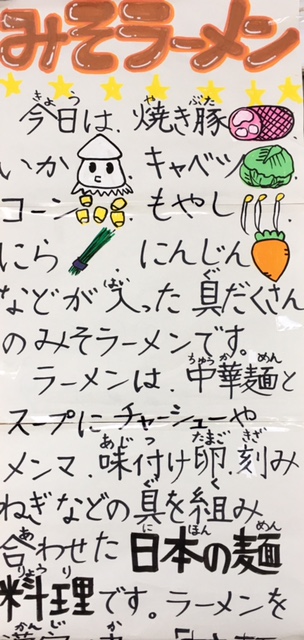 みそラーメン
今日は、焼き豚
いか、キャベツ
コーン、もやし
にら、にんじん
などが入った具だくさん
のみそラーメンです。
ラーメンは、中華麺と
スープにチャーシューや
メンマ、味付け卵、刻み
ねぎなどの具を組み
合わせた日本の麺
料理です。ラーメンを